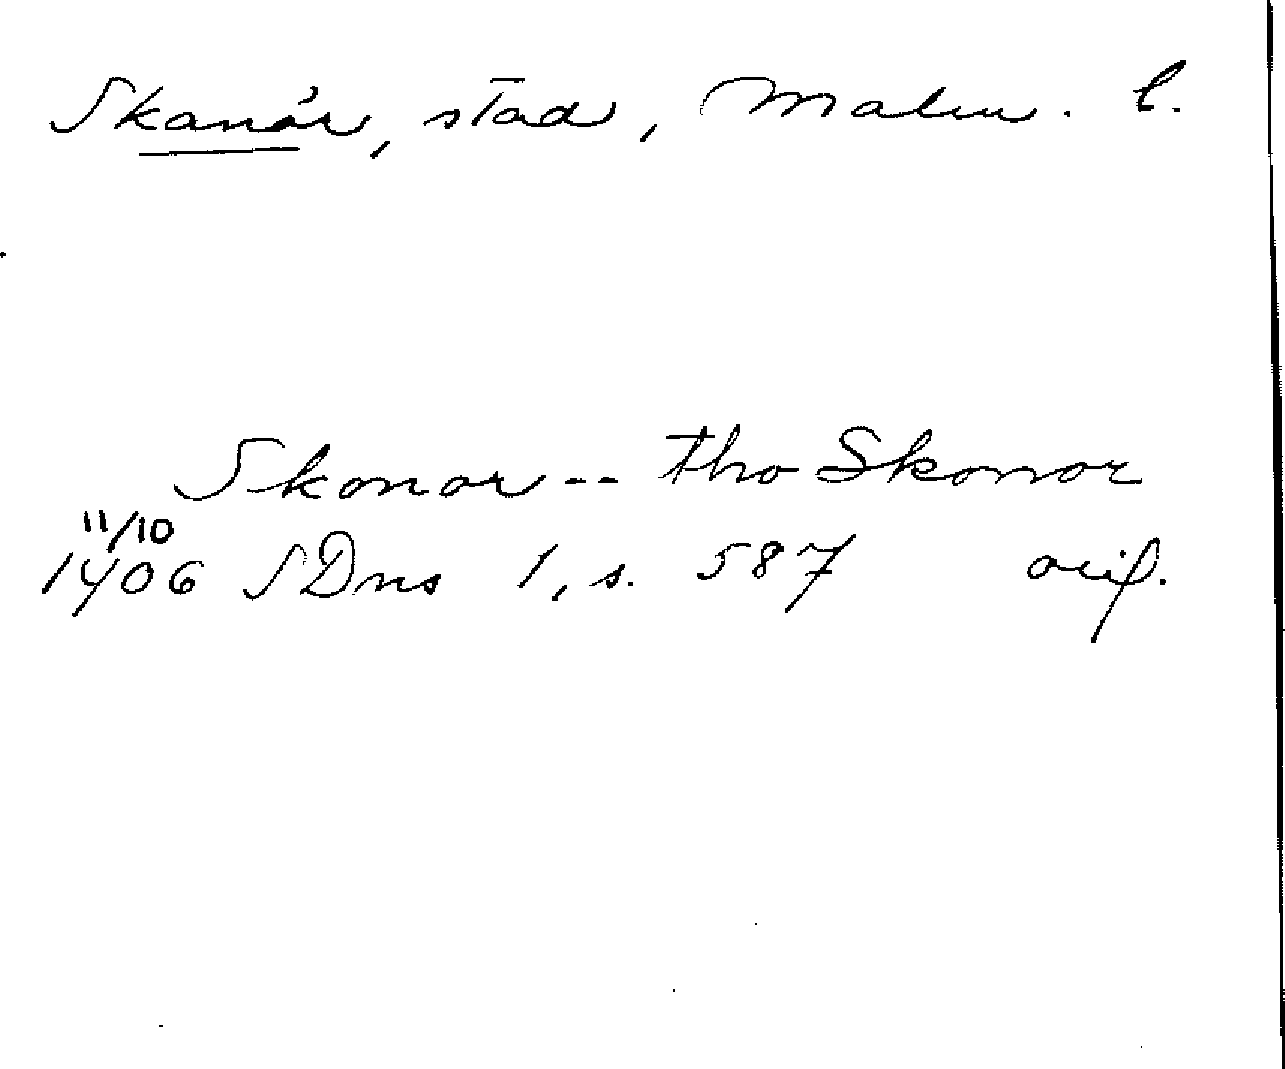 Skanör, stad, Malm. l.
Skonor -- tho Skonor
11/10
1406 SDns 1, s. 587 orig.